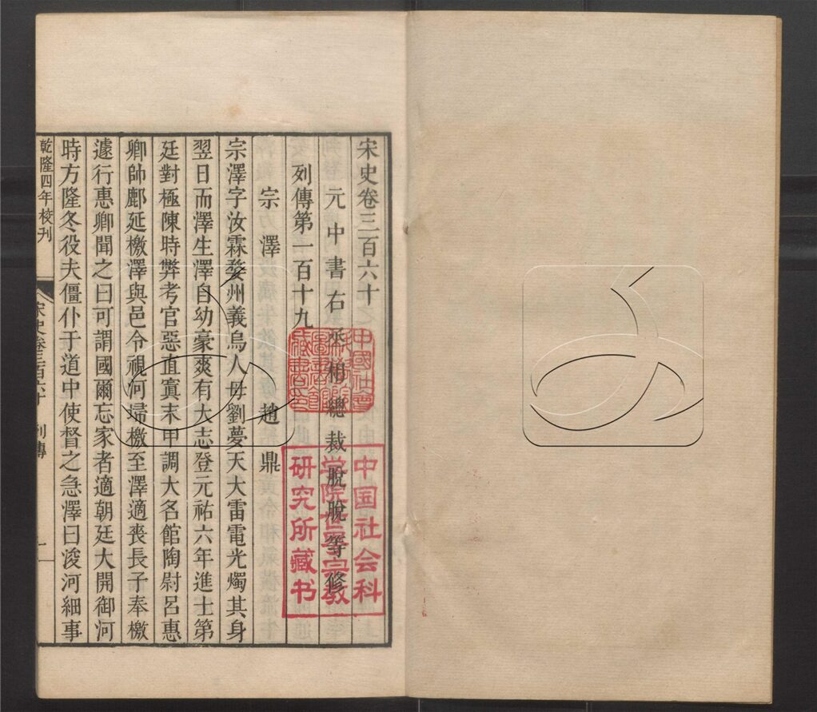 宋史卷三百六十
元中書右丞相總裁脫脫等修
列傳第一百十九
宗澤 趙鼎
宗澤字汝霖婺州義烏人母劉夢天大雷電光燭其身
翌日而澤生澤自幼豪爽有大志登元祐六年進士第
廷對極陳時弊考官惡直寘末甲調大名館陶尉呂惠
卿帥鄜延檄澤與邑令視河埽檄至澤適喪長子奉檄
遽行惠卿聞之曰可謂國爾忘家者適朝廷大開御河
時方隆冬役夫僵仆于道中使督之急澤曰浚河細事
乾隆四年校刊
宋史卷三百六十 列傳
一
中国社会科
学院世界宗教
研究所藏书